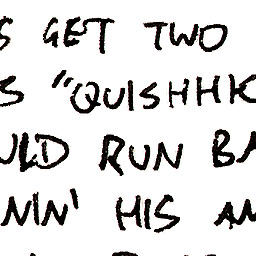 S GET TWO
S "QUISHHK
ULD RUN BA
NIN' HIS AN